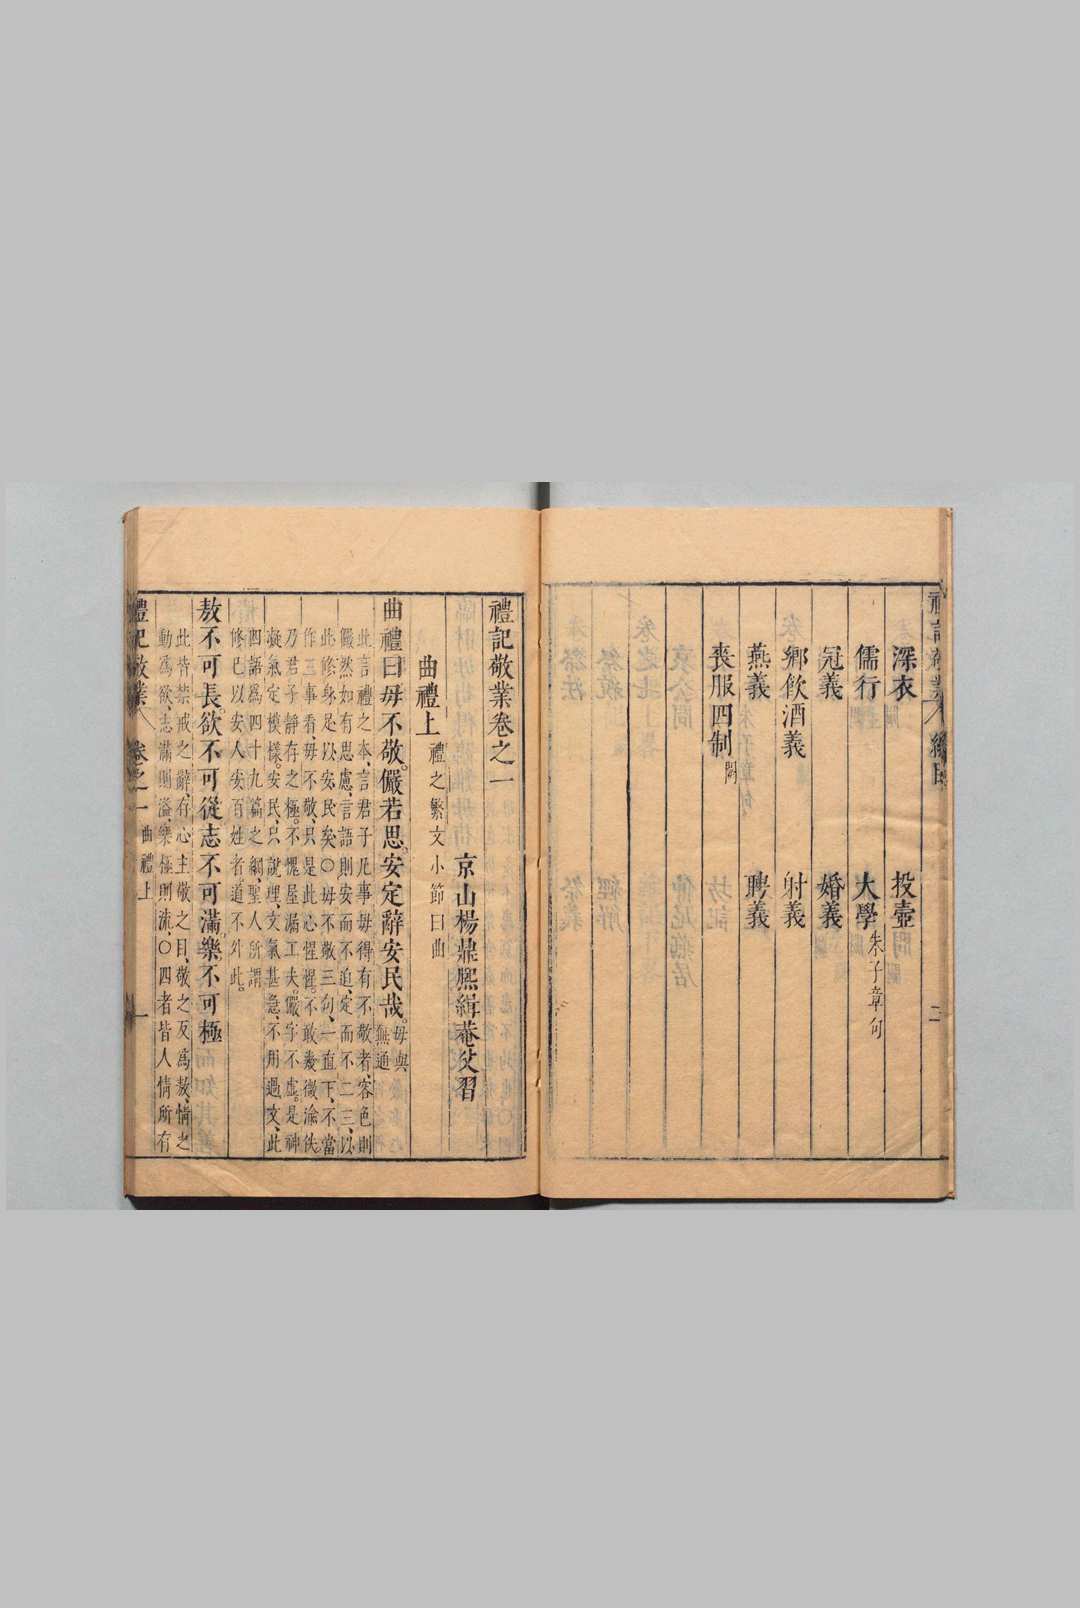 深衣 投壺
儒行 大學朱子章句
冠義 婚義
鄉飲酒義 射義
燕義 聘義
喪服四制
禮記敬業卷之一
京山楊鼎熙緝菴父習
曲禮上 禮之繁文小節曰曲
曲禮曰毋不敬。儼若思。安定辭安民哉。毋與
無通
此言禮之本、言君子凢事毋得有不敬者、容色則
儼然如有思慮、言語則安而不迫、定而不二三、以
此修身足以安民矣〇毋不敬三句、一直下、不當
作三事看、毋不敬、只是此心惺惺。不敢幾微渝佚。
乃君子靜存之極。不愧屋漏工夫。儼字不虛。是神
凝氣定模樣。安民、只說理、文氣甚急、不用過文、此
四語、爲四十九篇之綱、聖人所謂
修己以安人安百姓者。道不外此。
敖不可長。欲不可從志不可滿樂不可極
此皆禁戒之辭、有心主敬之目、敬之反爲敖、情之
動爲欲、志滿則溢、樂極則流、〇四者皆人情所有
禮記敬業 卷之一 曲禮上 一